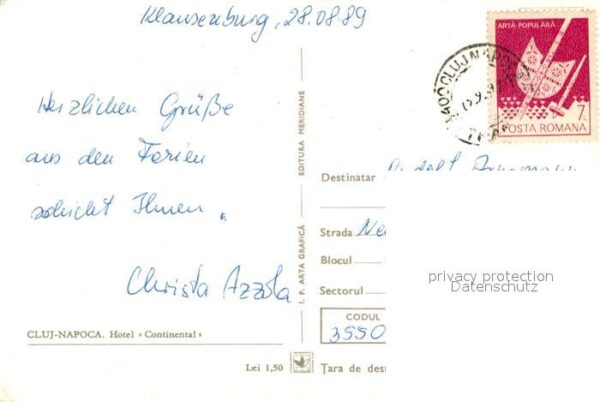 Klausenburg, 28.08.89
Herzlichen Grüße
aus den Ferien
schickt Ihnen
Christa Azzola
CLUJ-NAPOCA. Hotel «Continental»
Lei 1,50
I. P. ARTA GRAFICĂ
EDITURA MERIDIANE
ARTĂ POPULARĂ
7L
POSTA ROMANA
3400 CLUJ NAPOCA
Destinatar
Strada Ne
Blocul
Sectorul
CODUL
3550
Țara de dest
privacy protection
Datenschutz